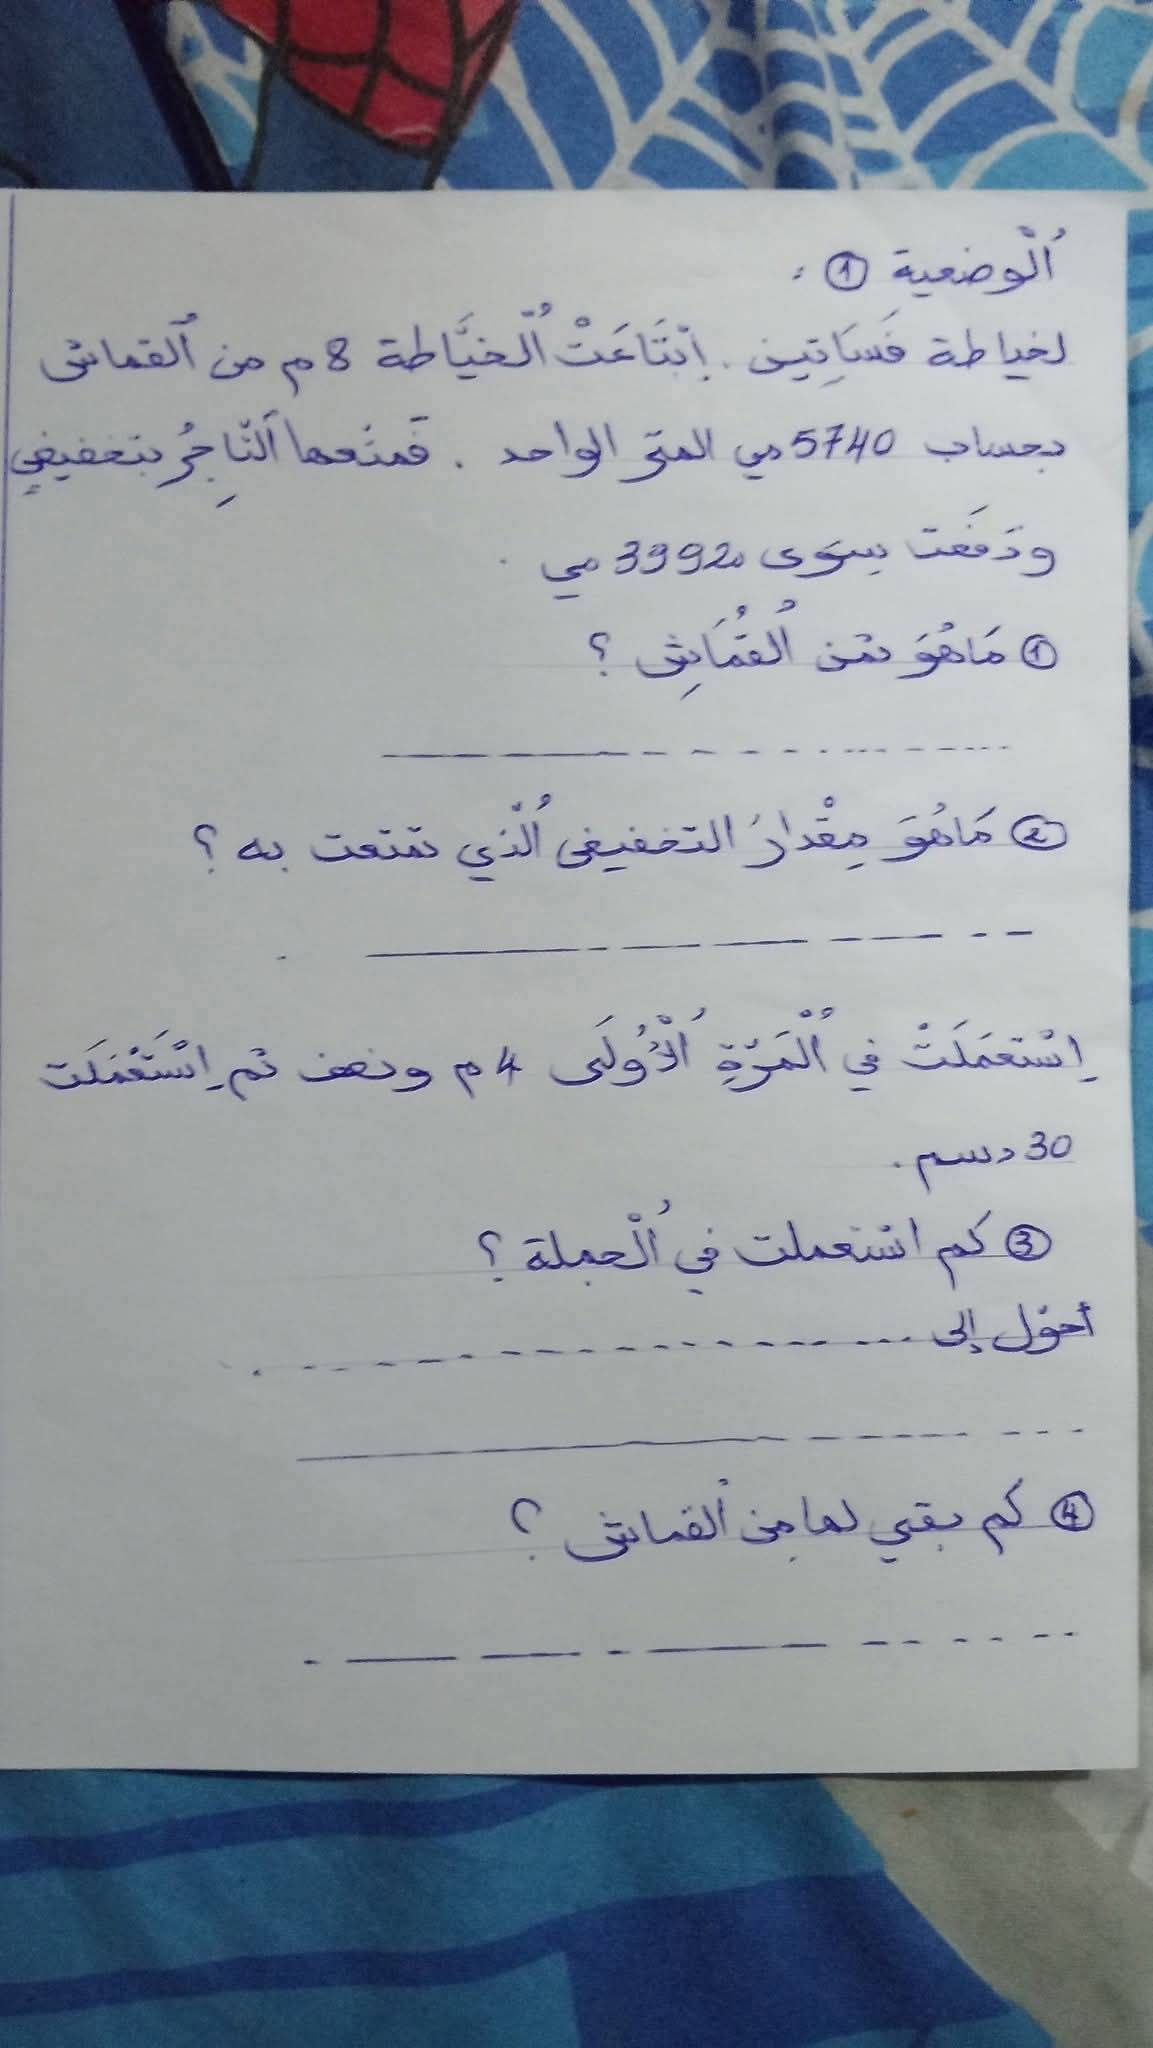 اُلْوضعية ① :
لخياطة فَسَاتِين . اِبْتَاعَتْ اُلْخيَّاطة 8 م من اُلقماش
بحساب 5740 مي المتر الواحد . فَمنَحها اَلتّاجِرُ بتخفيضٍ
ودَفَعت سِوَى 39920 مي .
① مَا هُوَ ثمن اُلقُمَاشِ ؟
② مَا هُوَ مِقْدارُ التخفيض اُلّذي تمتعت به ؟
اِسْتعمَلَتْ في اُلْمَرّةِ اُلْأُولَى 4 م ونصف ثم اِسْتَعْمَلَت
30 دسم .
③ كم استعملت في اُلْجملة ؟
أحوّل إلى
④ كم بقي لها مِن اُلقماش ؟